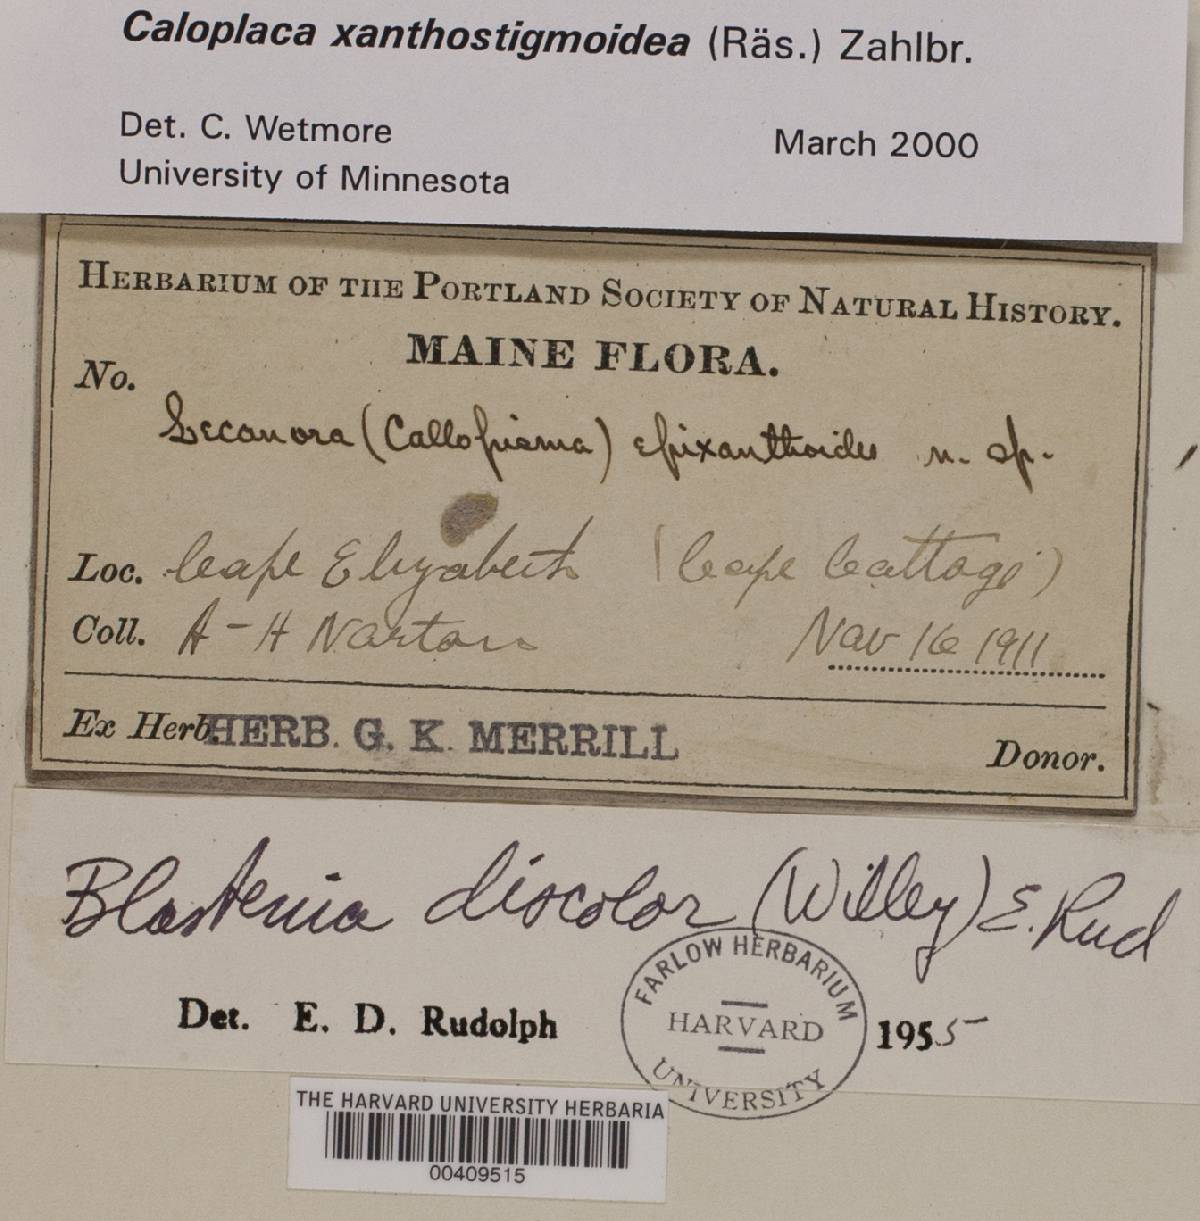 Caloplaca xanthostigmoidea (Räs.) Zahlbr.
Det. C. Wetmore March 2000
University of Minnesota
HERBARIUM OF THE PORTLAND SOCIETY OF NATURAL HISTORY.
MAINE FLORA.
No.
Lecanora (Callopisma) epixanthoides n. sp.
Loc. Cape Elizabeth (Cape Cottage)
Coll. A-H Norton Nov 16 1911
Ex Herb. HERB. G. K. MERRILL
Donor.
Blastenia discolor (Willey) E. Rud
Det. E. D. Rudolph 1955
FARLOW HERBARIUM
HARVARD
UNIVERSITY
THE HARVARD UNIVERSITY HERBARIA
00409515